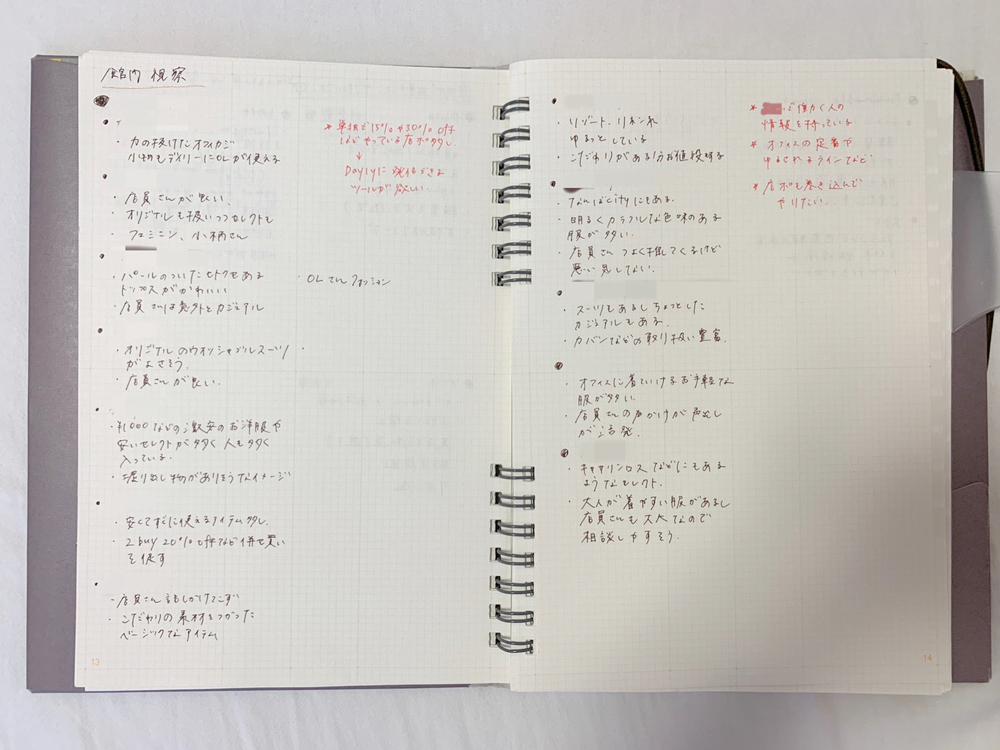 館内 視察
・力の抜けたオフィカジ
小物もデイリーにOLが使える
・店員さんが良い、
・オリジナルも扱いつつセレクトも
・フェミニン、小柄さん
・パールのついたセトクセある
トップスがかわいい
・店員さんは意外とカジュアル
・OLさんファッション
・オリジナルのウオッシャブルスーツ
がよさそう。
・店員さんが良い、
・¥1000などの激安のお洋服や
安いセレクトが多く人も多く
入っている。
・掘り出し物がありそうなイメージ
・安くてすぐに使えるアイテム多し、
・2buy 20%offなど併せ買い
を促す
・店員さん話しかけてこず
・こだわりの素材をつかった
ベーシックなアイテム
＊単択で15%や30% Off
などやっている店ポ多し
↓
Daylyに発信できる
ツールが欲しい
13
・リゾート、リネンで
ゆるっとしている
・こだわりがある分お値段する
・なんばCityにもある。
・明るくカラフルな色味のある
服が多い。
・店員さんつよく推してくるけど
悪い気しない。
・スーツもあるしちょっとした
カジュアルもある。
・カバンなどの取り扱い豊富
・オフィスに着ていけるお手軽な
服が多い
・店員さんの声かけが声出し
が活発。
・キャサリンロスなどにもある
ようなセレクト。
・大人が着やすい服があるし
店員さんも大人なので
相談しやすそう。
＊で働く人の
情報を持っている
＊オフィスの定着や
ゆるされるラインなど
＊店ポも巻き込んで
やりたい。
14